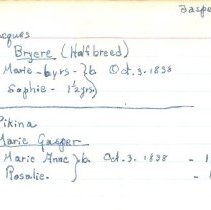 Gaspe
acques
Bryere (Halfbreed)
Marie - 6yrs - } b. Oct. 3. 1838
Sophie - 1½yrs
Pikina
Marie Gasper
Marie Anac } b. Oct. 3. 1838 - 1
Rosalie. -